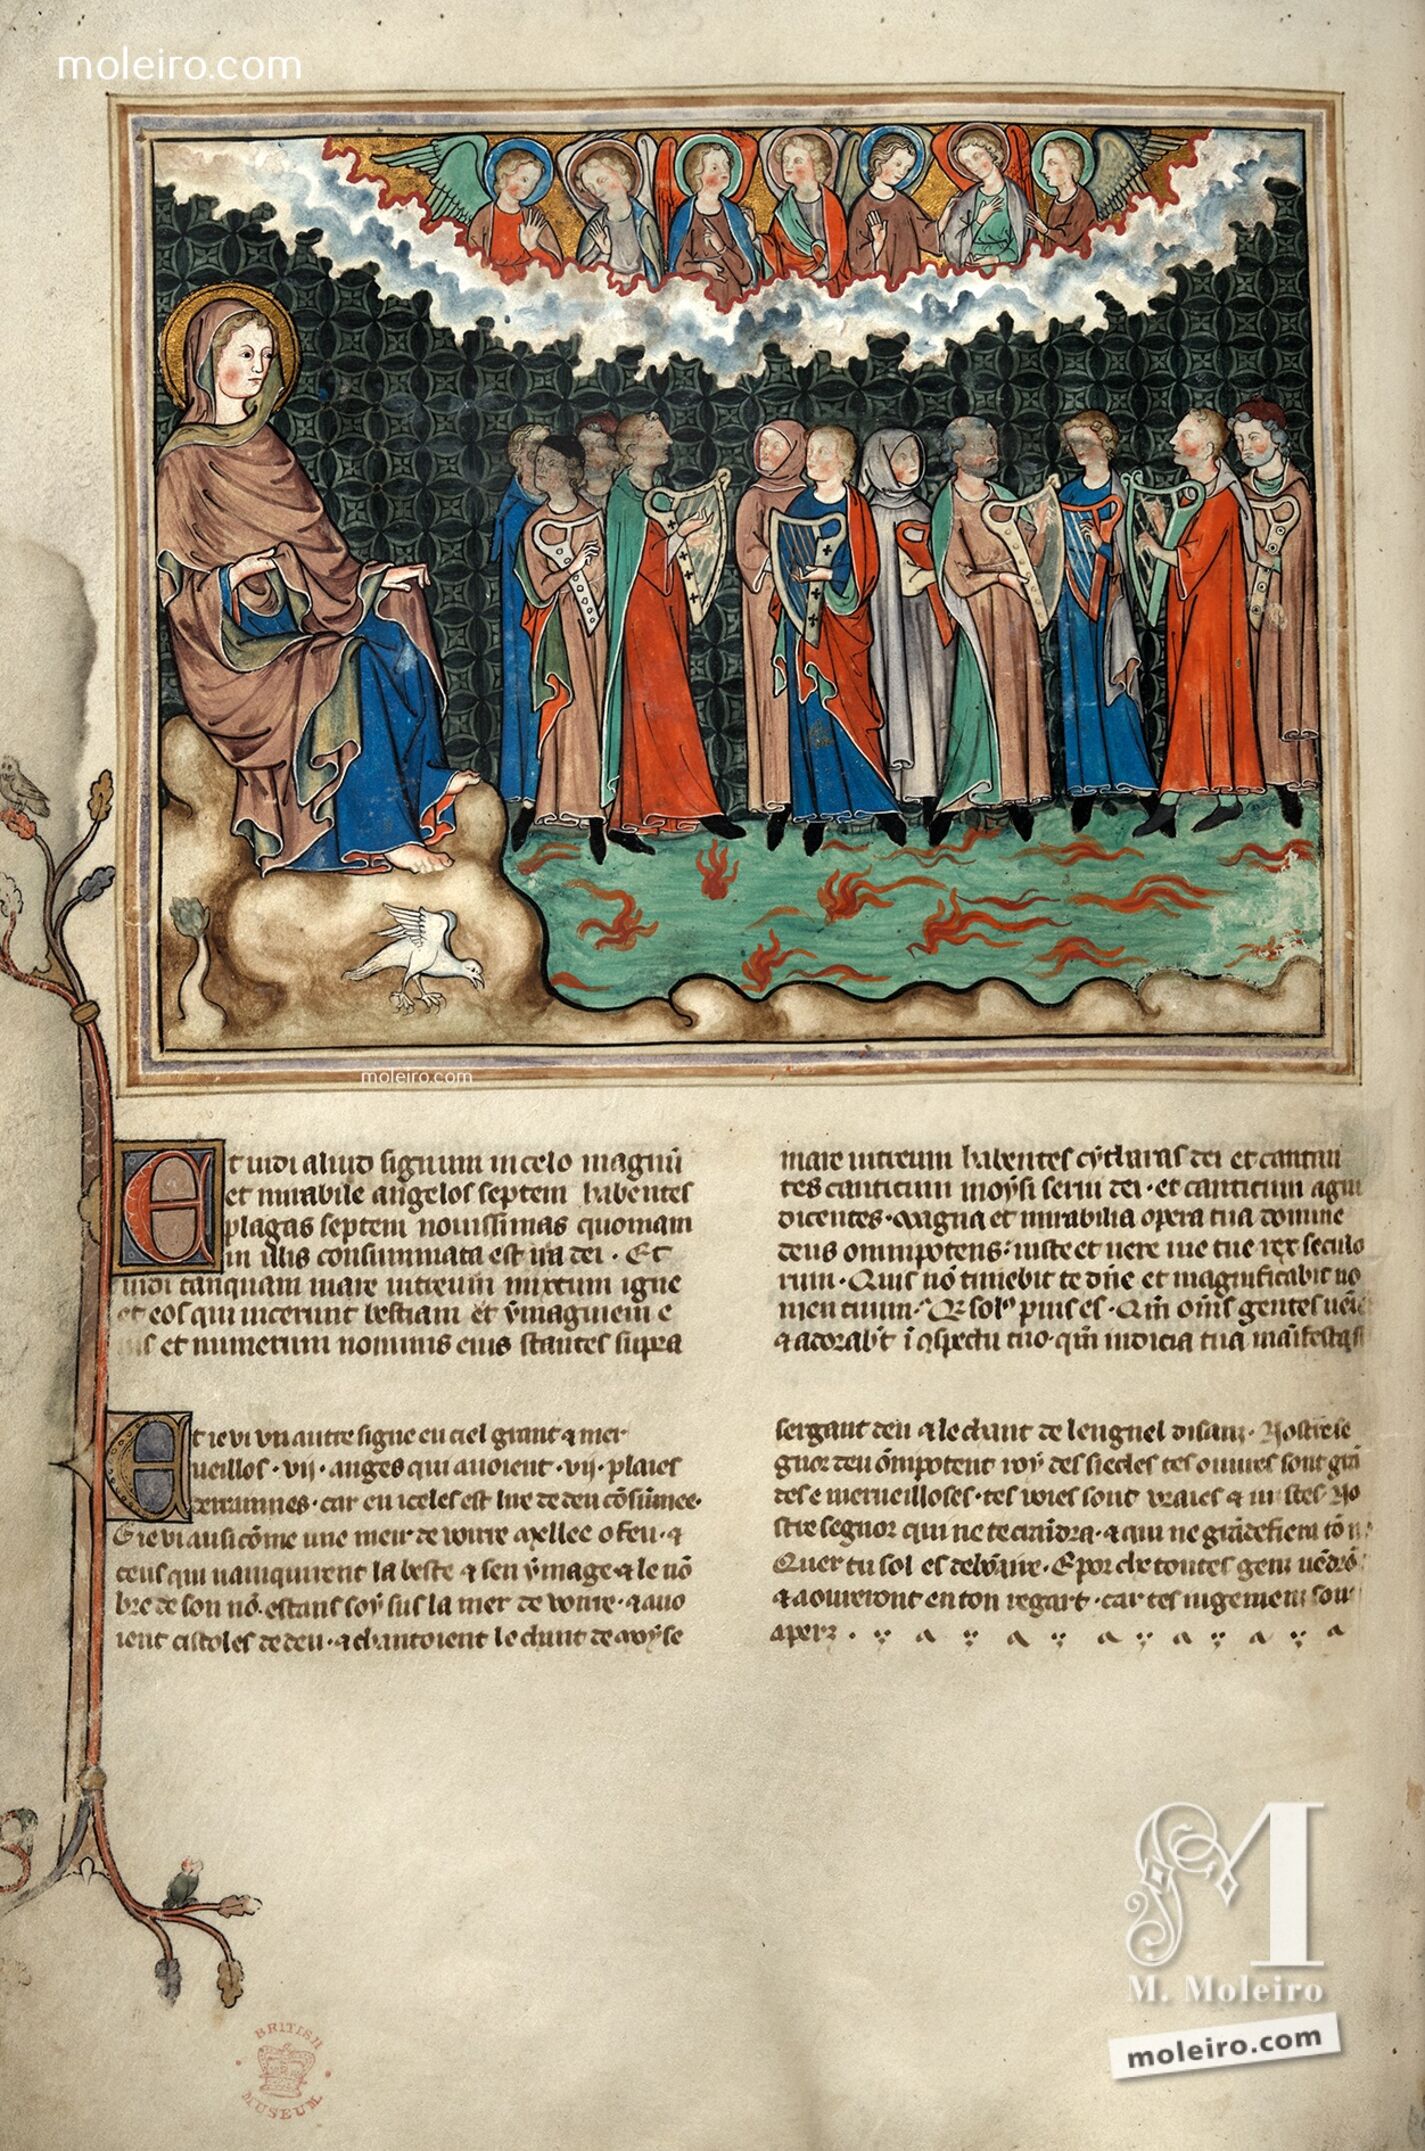 moleiro.com
moleiro.com
Et vidi aliud signum in celo magnũ
et mirabile angelos septem habentes
plagas septem nouissimas quoniam
in illis consummata est ira dei · Et
uidi tanquam mare uitreum mixtum igne
et eos qui uicerunt bestiam et ẏmaginem e
et numerum nominis eius stantes supra
mare uitreum habentes cẏtharas dei et cantan
tes canticum moẏsi serui dei · et canticum agni
dicentes · Magna et mirabilia opera tua domine
deus omnipotens · iuste et uere uie tue rex seculo
rum · Quis nõ timebit te dñe et magnificabit no
men tuum · Qr solꝰ pius es · Qm̃ oms̃ gentes
⁊ adorabt̃ ĩ ɔspectu tuo · qm̃ iudicia tua
Et ie vi vn autre signe en ciel grant ⁊ mer
ueillos · vij · anges qui auoient · vij · plaies
derraines · car en iceles est lire de deu cõsũmee ·
E ie vi ausi cõme une meir de voirre mellee o feu · ⁊
ceus qui uainquirent la beste ⁊ sen ẏmage ⁊ le nõ
bre de son nõ · estans soẏ sus la mer de voirre · ⁊ auo
ient citoles de deu · ⁊ chantoient le chant de moẏse
sergant deu ⁊ le chant de lengnel disant · Nostre se
gnor deu õmpotent roẏ des siecles tes ouures sont grã
des e merueilloses · tes voies sont vraies ⁊ iustes · No
stre segnor qui ne te craĩdra · ⁊ qui ne
Quer tu sol es debõnire · E por che toutes gent
⁊ aoureront en ton regart · car tes iugement sont
apert ·
BRITISH
MUSEUM
M
M. Moleiro
moleiro.com